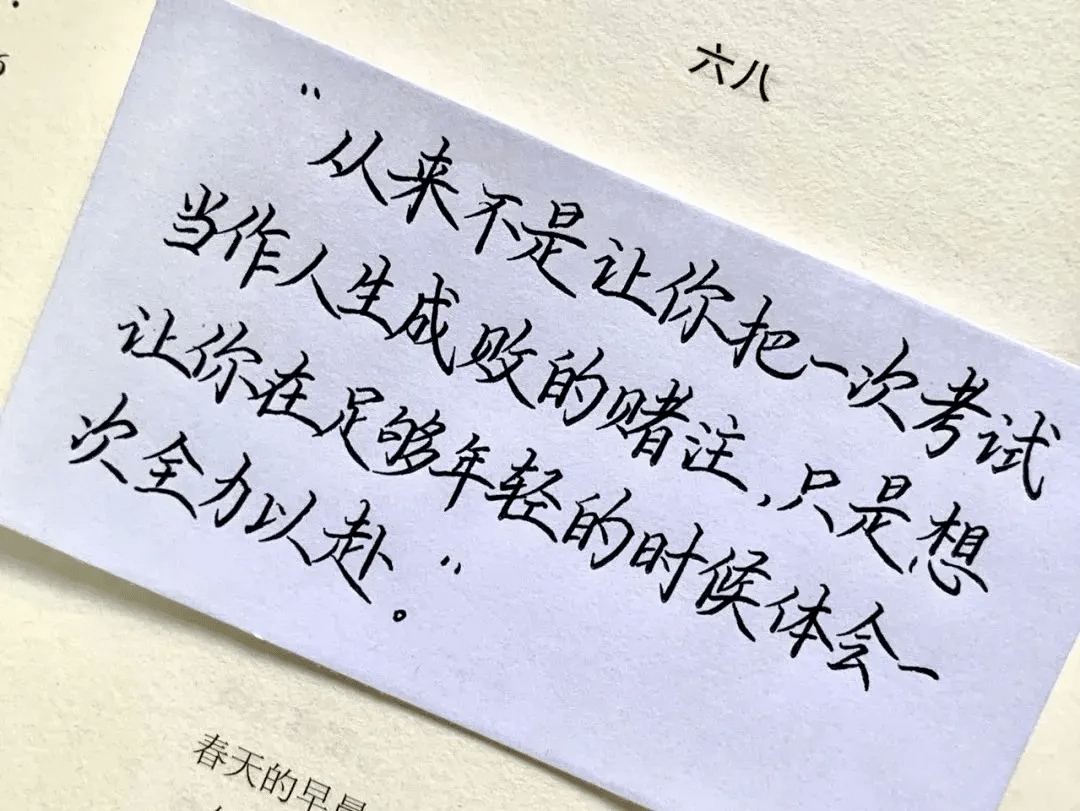 六八
"从来不是让你把一次考试
当作人生成败的赌注,只是想
让你在足够年轻的时候体会一
次全力以赴。"
春天的早晨